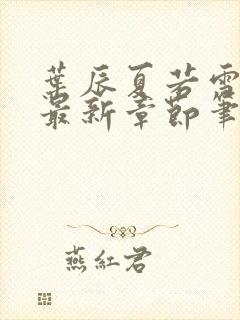 葉辰夏若雪
最新章節筆
燕紅君